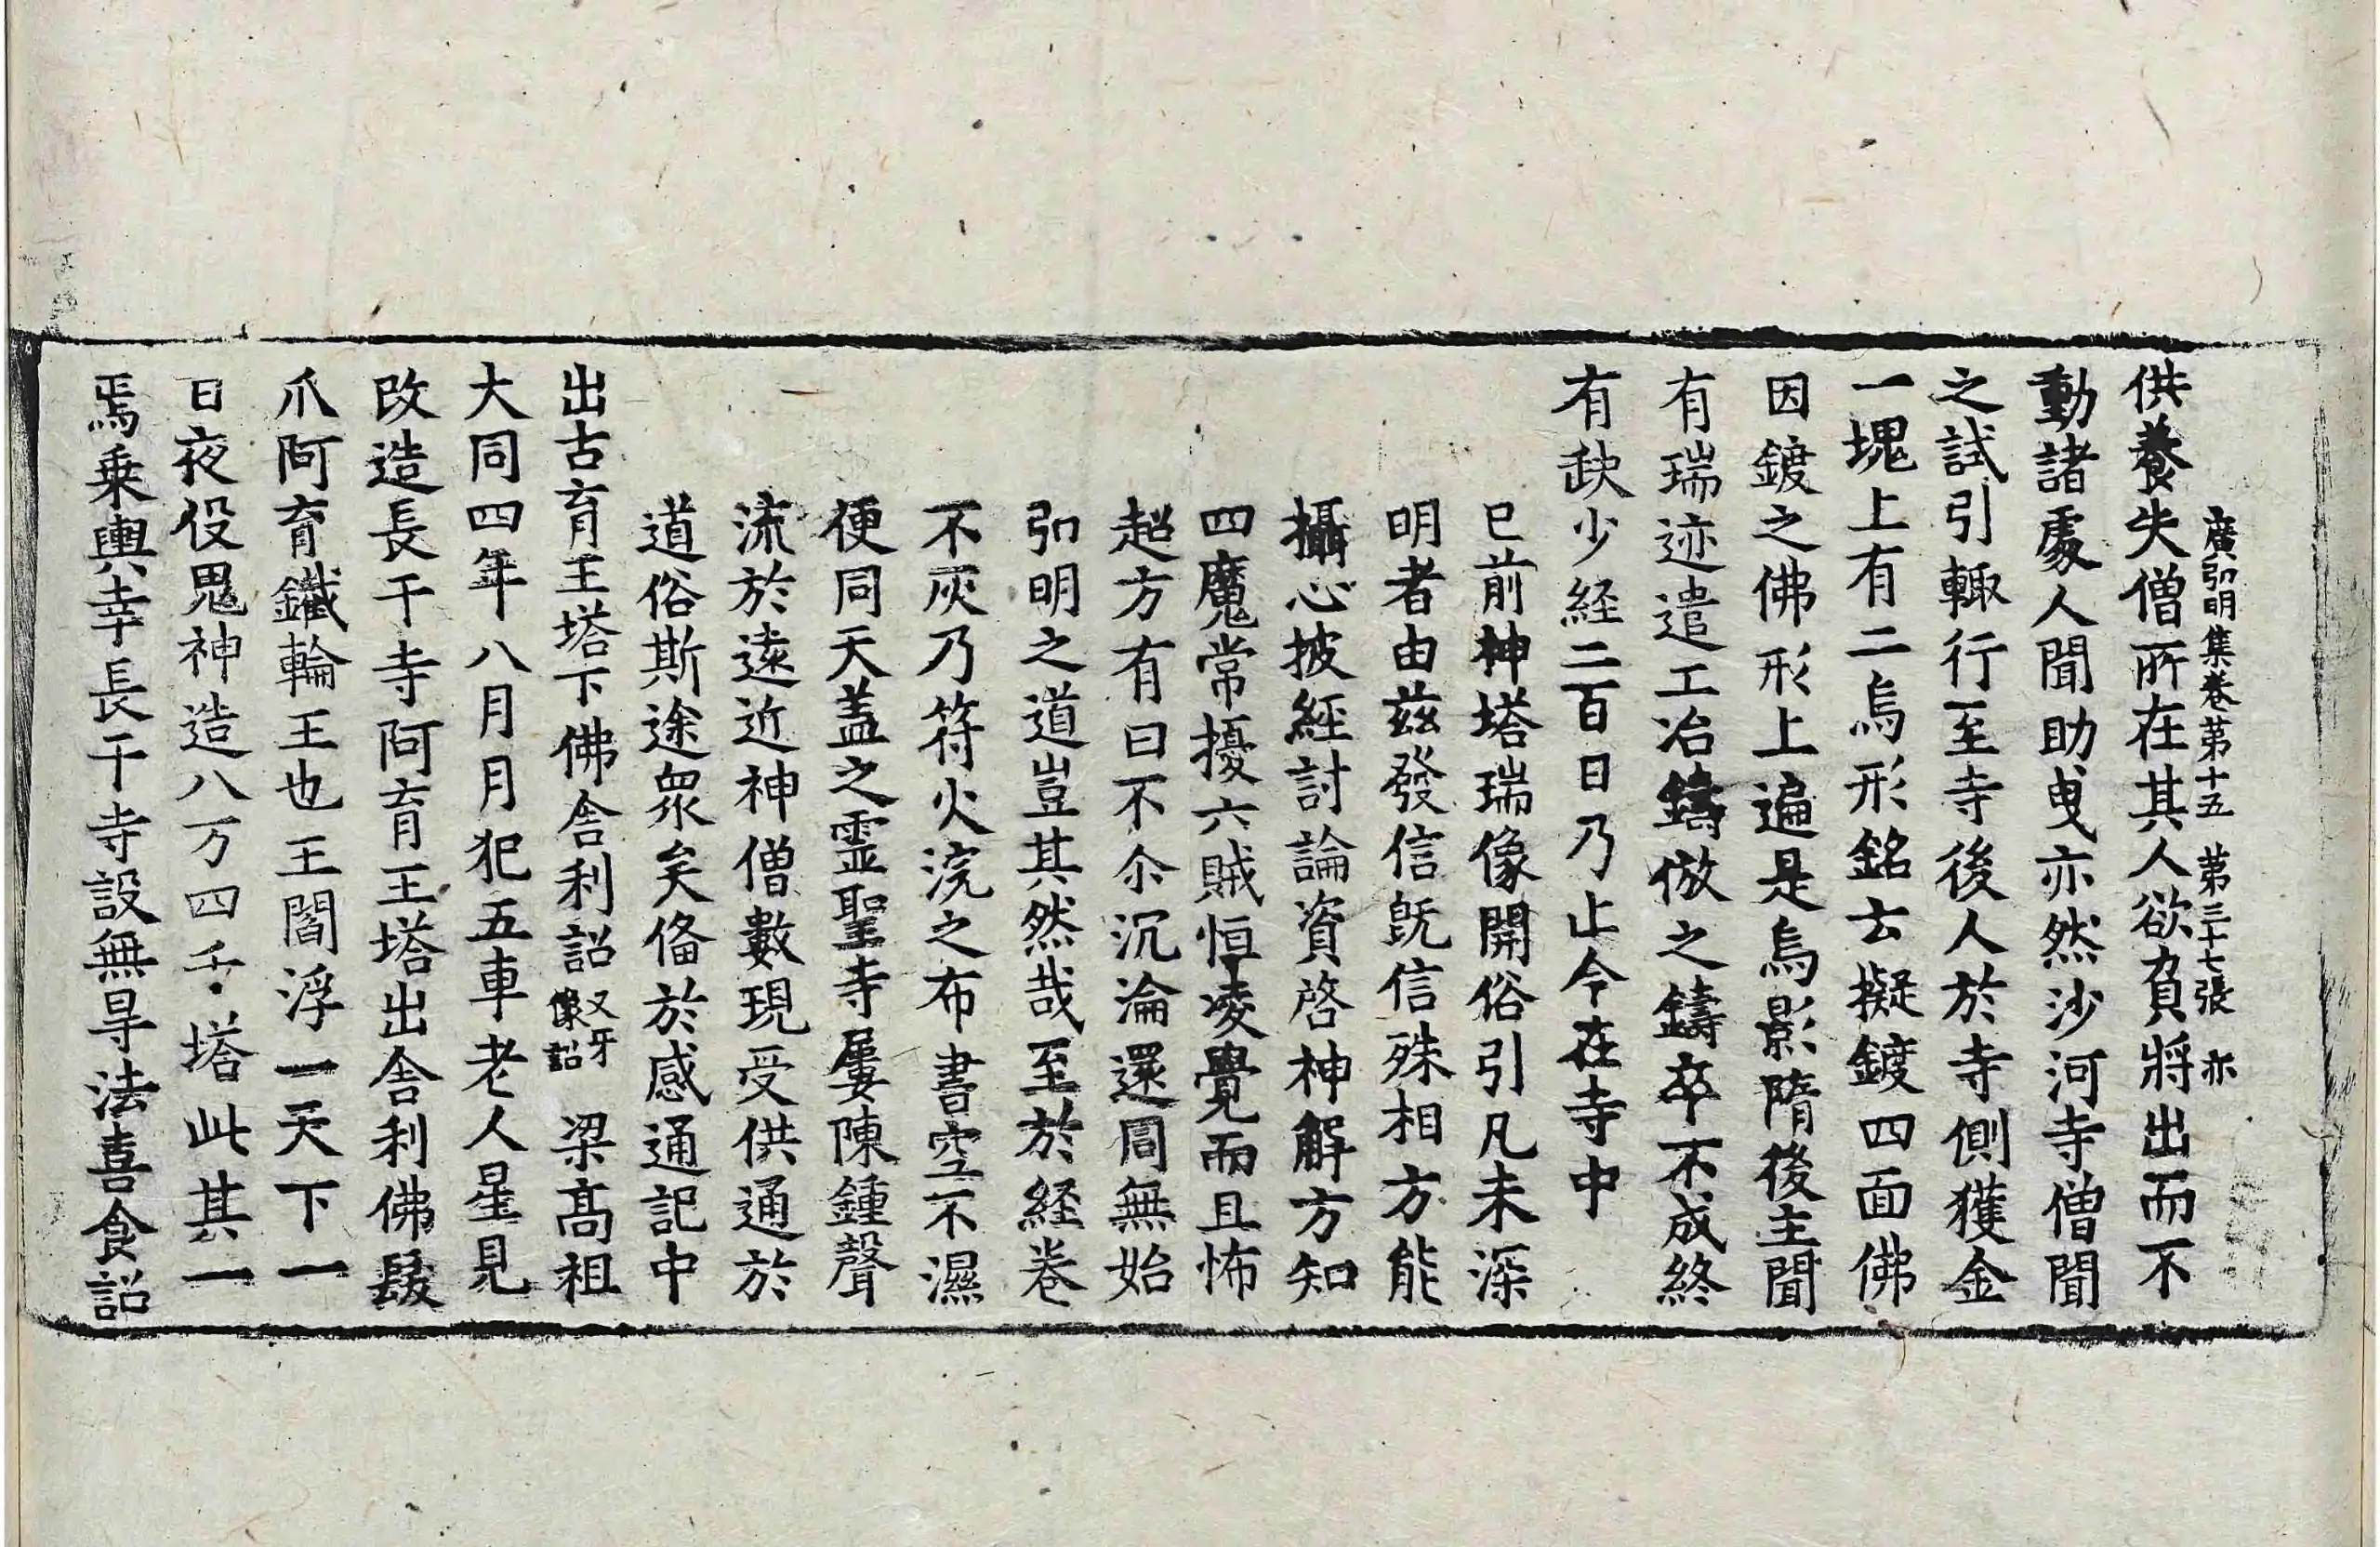 廣弘明集卷苐十五　第三十七張　亦
供養失僧所在其人欲負將出而不
動諸處人聞助曳亦然沙河寺僧聞
之試引輙行至寺後人於寺側獲金
一塊上有二烏形銘云擬鍍四面佛
因鍍之佛形上遍是烏影隋後主聞
有瑞迹遣工冶鑄倣之鑄卒不成終
有缺少経二百日乃止今在寺中
已前神塔瑞像開俗引凡未深
明者由兹發信旣信殊相方能
攝心披經討論資啓神解方知
四魔常擾六賊恒凌覺而且怖
超方有曰不尒沉淪還同無始
弘明之道豈其然哉至於経卷
不灰乃符火浣之布書空不濕
便同天盖之霊聖寺屢陳鍾聲
流於遠近神僧數現受供通於
道俗斯途衆矣俻於感通記中
出古育王塔下佛舎利詔又牙像詔　梁髙祖
大同四年八月月犯五車老人星見
改造長干寺阿育王塔出舎利佛髮
爪阿育鐵輪王也王閻浮一天下一
日夜役鬼神造八万四千塔此其一
焉乗輿幸長干寺設無㝵法喜食詔